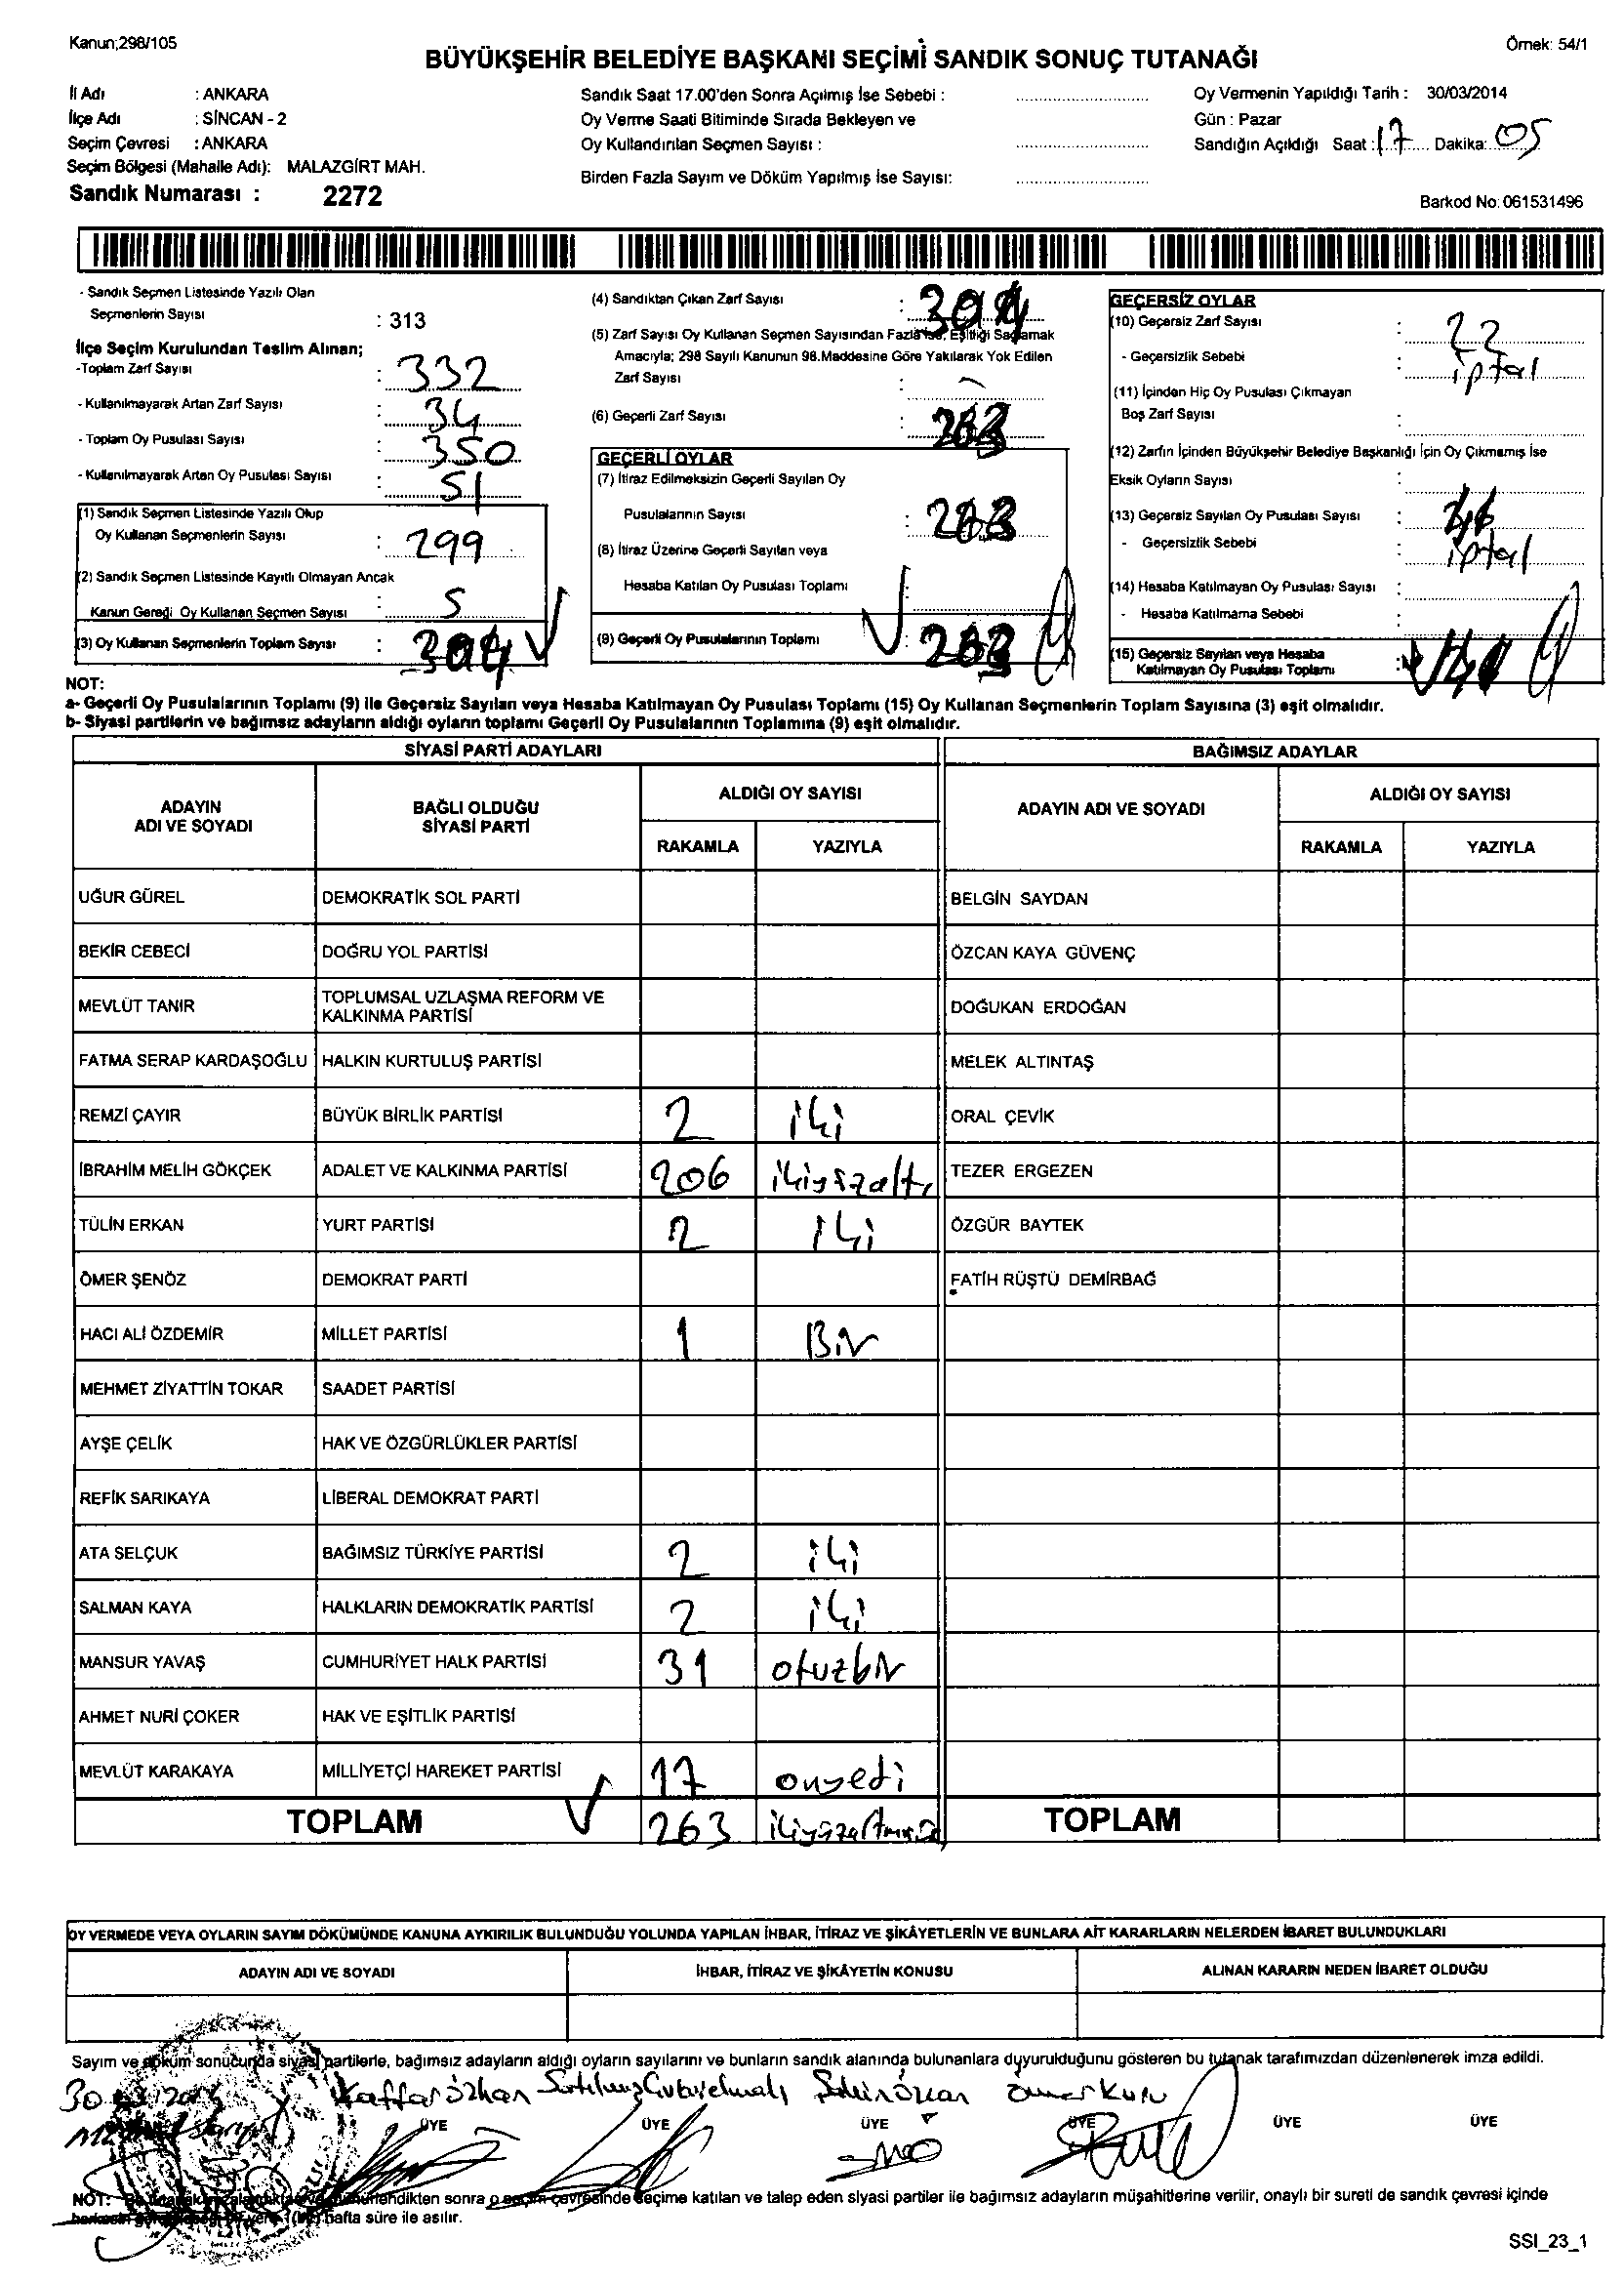 Kanun;298/105
Örnek: 54/1
BÜYÜKŞEHİR BELEDİYE BAŞKANI SEÇİMİ SANDIK SONUÇ TUTANAĞI
İl Adı : ANKARA
İlçe Adı : SİNCAN - 2
Seçim Çevresi : ANKARA
Seçim Bölgesi (Mahalle Adı): MALAZGİRT MAH.
Sandık Numarası : 2272
Sandık Saat 17.00'den Sonra Açılmış İse Sebebi :
Oy Verme Saati Bitiminde Sırada Bekleyen ve
Oy Kullandırılan Seçmen Sayısı :
Birden Fazla Sayım ve Döküm Yapılmış İse Sayısı:
Oy Vermenin Yapıldığı Tarih : 30/03/2014
Gün : Pazar
Sandığın Açıldığı Saat : 17 Dakika: 05
Barkod No: 061531496
- Sandık Seçmen Listesinde Yazılı Olan
Seçmenlerin Sayısı : 313
İlçe Seçim Kurulundan Teslim Alınan;
-Toplam Zarf Sayısı : 332
- Kullanılmayarak Artan Zarf Sayısı : 34
- Toplam Oy Pusulası Sayısı : 350
- Kullanılmayarak Artan Oy Pusulası Sayısı : 51
(1) Sandık Seçmen Listesinde Yazılı Olup
Oy Kullanan Seçmenlerin Sayısı : 299
(2) Sandık Seçmen Listesinde Kayıtlı Olmayan Ancak
Kanun Gereği Oy Kullanan Seçmen Sayısı : 5
(3) Oy Kullanan Seçmenlerin Toplam Sayısı : 304
(4) Sandıktan Çıkan Zarf Sayısı :
(5) Zarf Sayısı Oy Kullanan Seçmen Sayısından Fazla İse, Eşitliği Sağlamak
Amacıyla; 298 Sayılı Kanunun 98.Maddesine Göre Yakılarak Yok Edilen
Zarf Sayısı : -
(6) Geçerli Zarf Sayısı :
GEÇERLİ OYLAR
(7) İtiraz Edilmeksizin Geçerli Sayılan Oy
Pusulalarının Sayısı :
(8) İtiraz Üzerine Geçerli Sayılan veya
Hesaba Katılan Oy Pusulası Toplamı
(9) Geçerli Oy Pusulalarının Toplamı :
GEÇERSİZ OYLAR
(10) Geçersiz Zarf Sayısı : 22
- Geçersizlik Sebebi : iptal
(11) İçinden Hiç Oy Pusulası Çıkmayan
Boş Zarf Sayısı :
(12) Zarfın İçinden Büyükşehir Belediye Başkanlığı İçin Oy Çıkmamış İse
Eksik Oyların Sayısı :
(13) Geçersiz Sayılan Oy Pusulası Sayısı :
- Geçersizlik Sebebi : iptal
(14) Hesaba Katılmayan Oy Pusulası Sayısı :
- Hesaba Katılmama Sebebi :
(15) Geçersiz Sayılan veya Hesaba
Katılmayan Oy Pusulası Toplamı :
NOT:
a- Geçerli Oy Pusulalarının Toplamı (9) ile Geçersiz Sayılan veya Hesaba Katılmayan Oy Pusulası Toplamı (15) Oy Kullanan Seçmenlerin Toplam Sayısına (3) eşit olmalıdır.
b- Siyasi partilerin ve bağımsız adayların aldığı oyların toplamı Geçerli Oy Pusulalarının Toplamına (9) eşit olmalıdır.
SİYASİ PARTİ ADAYLARI
BAĞIMSIZ ADAYLAR
ADAYIN ADI VE SOYADI
BAĞLI OLDUĞU SİYASİ PARTİ
ALDIĞI OY SAYISI
RAKAMLA YAZIYLA
ADAYIN ADI VE SOYADI
ALDIĞI OY SAYISI
RAKAMLA YAZIYLA
UĞUR GÜREL DEMOKRATİK SOL PARTİ BELGİN SAYDAN
BEKİR CEBECİ DOĞRU YOL PARTİSİ ÖZCAN KAYA GÜVENÇ
MEVLÜT TANIR TOPLUMSAL UZLAŞMA REFORM VE KALKINMA PARTİSİ DOĞUKAN ERDOĞAN
FATMA SERAP KARDAŞOĞLU HALKIN KURTULUŞ PARTİSİ MELEK ALTINTAŞ
REMZİ ÇAYIR BÜYÜK BİRLİK PARTİSİ 2 iki ORAL ÇEVİK
İBRAHİM MELİH GÖKÇEK ADALET VE KALKINMA PARTİSİ 206 ikiyüzaltı TEZER ERGEZEN
TÜLİN ERKAN YURT PARTİSİ 2 iki ÖZGÜR BAYTEK
ÖMER ŞENÖZ DEMOKRAT PARTİ FATİH RÜŞTÜ DEMİRBAĞ
HACI ALİ ÖZDEMİR MİLLET PARTİSİ 1 Bir
MEHMET ZİYATTİN TOKAR SAADET PARTİSİ
AYŞE ÇELİK HAK VE ÖZGÜRLÜKLER PARTİSİ
REFİK SARIKAYA LİBERAL DEMOKRAT PARTİ
ATA SELÇUK BAĞIMSIZ TÜRKİYE PARTİSİ 2 iki
SALMAN KAYA HALKLARIN DEMOKRATİK PARTİSİ 2 iki
MANSUR YAVAŞ CUMHURİYET HALK PARTİSİ 31 otuzbir
AHMET NURİ ÇOKER HAK VE EŞİTLİK PARTİSİ
MEVLÜT KARAKAYA MİLLİYETÇİ HAREKET PARTİSİ 17 onyedi
TOPLAM 263 TOPLAM
OY VERMEDE VEYA OYLARIN SAYIM DÖKÜMÜNDE KANUNA AYKIRILIK BULUNDUĞU YOLUNDA YAPILAN İHBAR, İTİRAZ VE ŞİKÂYETLERİN VE BUNLARA AİT KARARLARIN NELERDEN İBARET BULUNDUKLARI
ADAYIN ADI VE SOYADI İHBAR, İTİRAZ VE ŞİKÂYETİN KONUSU ALINAN KARARIN NEDEN İBARET OLDUĞU
Sayım ve döküm sonucunda siyasi partilerle, bağımsız adayların aldığı oyların sayılarını ve bunların sandık alanında bulunanlara duyurulduğunu gösteren bu tutanak tarafımızdan düzenlenerek imza edildi.
ÜYE ÜYE ÜYE ÜYE ÜYE ÜYE
NOT: sonra o seçim çevresinde seçime katılan ve talep eden siyasi partiler ile bağımsız adayların müşahitlerine verilir, onaylı bir sureti de sandık çevresi içinde
hafta süre ile asılır.
SSI_23_1